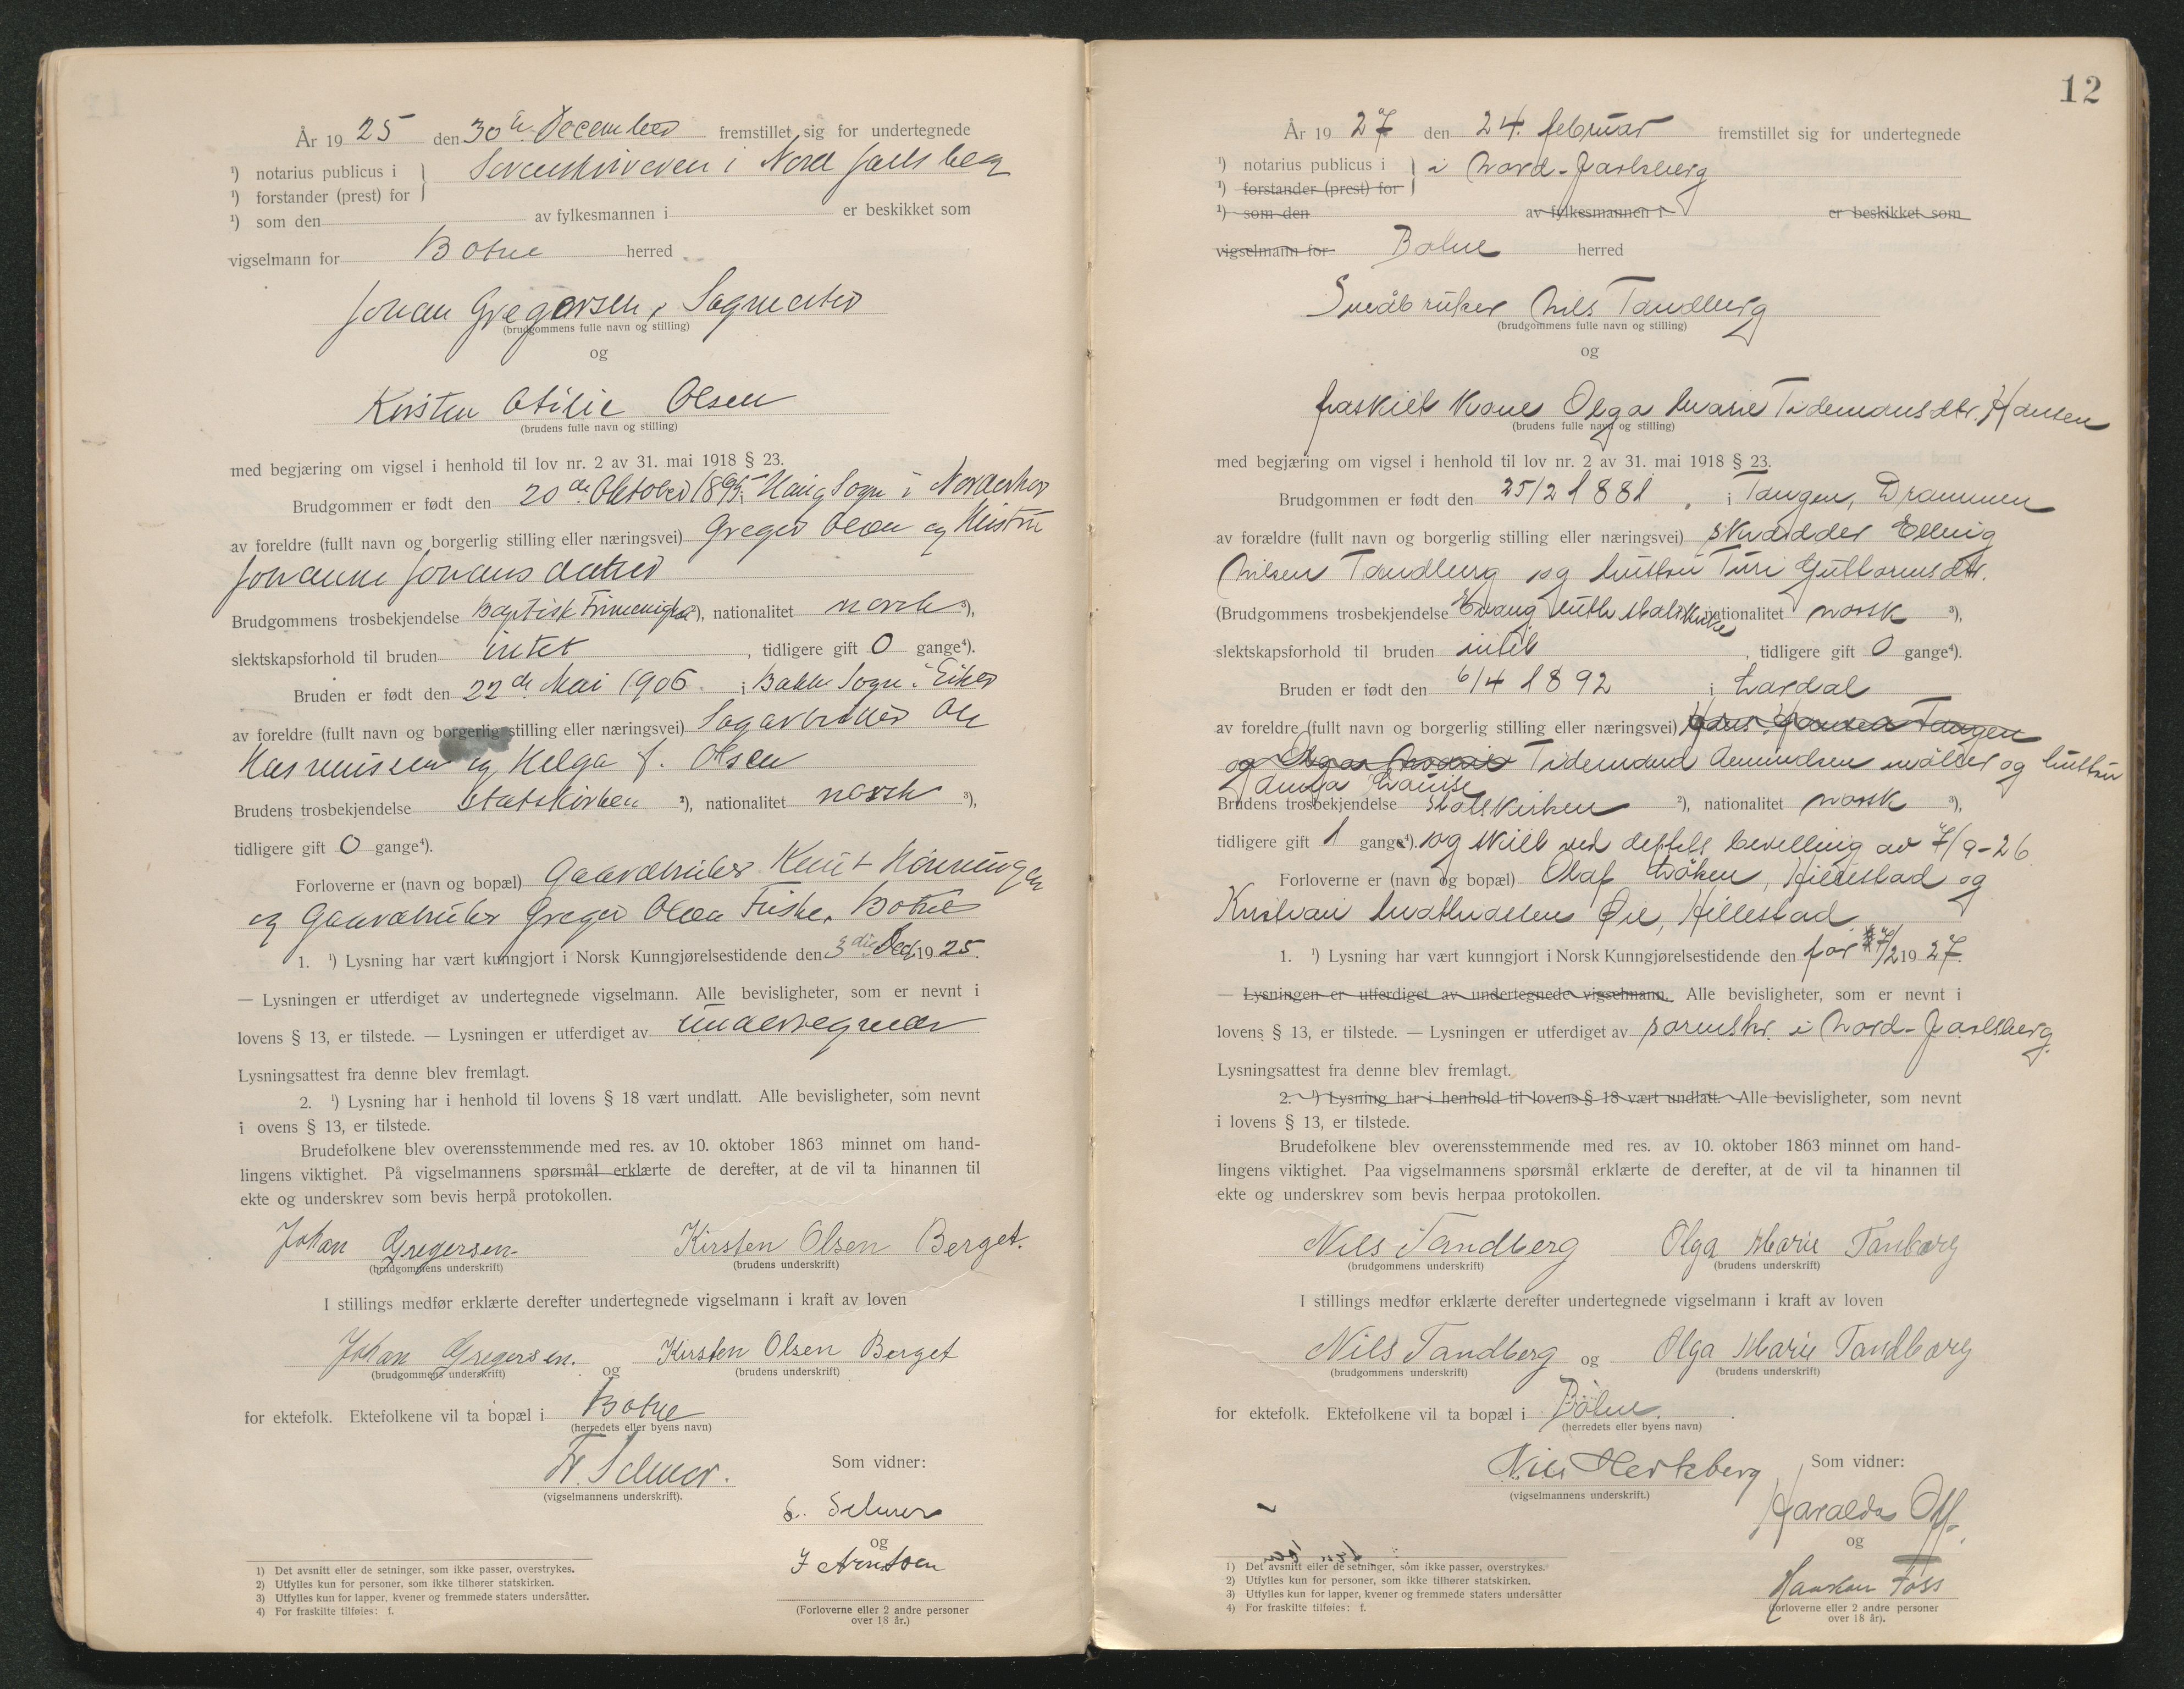 År 1925 den 30te December fremstillet sig for undertegnede
¹) notarius publicus i
Sorenskriveren i Nord Jarlsberg
¹) forstander (prest) for
¹) som den av fylkesmannen i er beskikket som
vigselmann for Botne herred
Johan Gregersen, Sagmester
(brudgommens fulle navn og stilling)
og
Kirsten Otilie Olsen
(brudens fulle navn og stilling)
med begjæring om vigsel i henhold til lov nr. 2 av 31. mai 1918 § 23.
Brudgommen er født den 20de Oktober Haug Sogn i Norderhov
av foreldre (fullt navn og borgerlig stilling eller næringsvei) Greger Olsen og Hustru
Johanne Johansdatter
Brudgommens trosbekjendelse Baptist ²), nationalitet norsk ³),
slektskapsforhold til bruden intet, tidligere gift 0 gange⁴).
Bruden er født den 22de Mai 1906 i Bakke Sogn i Eiker
av foreldre (fullt navn og borgerlig stilling eller næringsvei) Sagarbeider Ole
Rasmussen og Helga J. Olsen
Brudens trosbekjendelse Statskirken ²), nationalitet norsk ³),
tidligere gift 0 gange⁴).
Forloverne er (navn og bopæl) Gaardbruker Knut
og Gaardbruker Greger Olsen Fuske, Botne
1. ¹) Lysning har vært kunngjort i Norsk Kunngjørelsestidende den 3die Dec. 1925.
— Lysningen er utferdiget av undertegnede vigselmann. Alle bevisligheter, som er nevnt i
lovens § 13, er tilstede. — Lysningen er utferdiget av undertegnede
Lysningsattest fra denne blev fremlagt.
2. ¹) Lysning har i henhold til lovens § 18 vært undlatt. Alle bevisligheter, som nevnt
i ovens § 13, er tilstede.
Brudefolkene blev overensstemmende med res. av 10. oktober 1863 minnet om hand-
lingens viktighet. På vigselmannens spørsmål erklærte de derefter, at de vil ta hinannen til
ekte og underskrev som bevis herpå protokollen.
Johan Gregersen. Kirsten Olsen Berget.
(brudgommens underskrift) (brudens underskrift)
I stillings medfør erklærte derefter undertegnede vigselmann i kraft av loven
Johan Gregersen. og Kirsten Olsen Berget
(brudgommens underskrift) (brudens underskrift)
for ektefolk. Ektefolkene vil ta bopæl i Botne
(herredets eller byens navn)
Fr. Selmer.
(vigselmannens underskrift).
Som vidner:
S. Selmer
og
J Arntsen
(Forloverne eller 2 andre personer
over 18 år.)
1) Det avsnitt eller de setninger, som ikke passer, overstrykes.
2) Utfylles kun for personer, som ikke tilhører statskirken.
3) Utfylles kun for lapper, kvener og fremmede staters undersåtter.
4) For fraskilte tilføies: f.
12
År 1927 den 24. februar fremstillet sig for undertegnede
¹) notarius publicus i
i Nord-Jarlsberg
¹) forstander (prest) for
¹) som den av fylkesmannen i er beskikket som
vigselmann for Botne herred
Småbruker Nils Tandberg
(brudgommens fulle navn og stilling)
og
fraskilt kone Olga Marie Tidemansdtr. Hansen
(brudens fulle navn og stilling)
med begjæring om vigsel i henhold til lov nr. 2 av 31. mai 1918 § 23.
Brudgommen er født den 25/2 1881, i Tangen, Drammen
av forældre (fullt navn og borgerlig stilling eller næringsvei) skredder Elling
Nilsen Tandberg og hustru Turi Guttormsdtr.
(Brudgommens trosbekjendelse Evang luth statskirke nationalitet norsk ³),
slektskapsforhold til bruden intet, tidligere gift 0 gange⁴).
Bruden er født den 6/4 1892 i Lardal
av foreldre (fullt navn og borgerlig stilling eller næringsvei) Hans Hansen Tangen
og Olga Marie Tidemand Amundsen møller og hustru
Louise
Brudens trosbekjendelse Statskirken ²), nationalitet norsk ³),
tidligere gift 1 gange⁴). og skilt ved deptets bevilling av 7/9-26
Forloverne er (navn og bopæl) Olaf Løken, Hillestad og
Kristian Mathiassen Øie, Hillestad
1. ¹) Lysning har vært kunngjort i Norsk Kunngjørelsestidende den for 7/2 1927.
— Lysningen er utferdiget av undertegnede vigselmann. Alle bevisligheter, som er nevnt i
lovens § 13, er tilstede. — Lysningen er utferdiget av sorenskr. i Nord-Jarlsberg.
Lysningsattest fra denne blev fremlagt.
2. ¹) Lysning har i henhold til lovens § 18 vært undlatt. Alle bevisligheter, som nevnt
i lovens § 13, er tilstede.
Brudefolkene blev overensstemmende med res. av 10. oktober 1863 minnet om hand-
lingens viktighet. Paa vigselmannens spørsmål erklærte de derefter, at de vil ta hinannen til
ekte og underskrev som bevis herpaa protokollen.
Nils Tandberg Olga Marie Tanbærg
(brudgommens underskrift) (brudens underskrift)
I stillings medfør erklærte derefter undertegnede vigselmann i kraft av loven
Nils Tandberg og Olga Marie Tandbærg
(brudgommens underskrift) (brudens underskrift)
for ektefolk. Ektefolkene vil ta bopæl i Botne.
(herredets eller byens navn)
Nils Hertzberg
(vigselmannens underskrift.)
Som vidner:
Harald Off.
og
Haakon Foss
(Forloverne eller 2 andre personer
over 18 år).
1) Det avsnitt eller de setninger, som ikke passer, overstrykes.
2) Utfylles kun for personer, som ikke tilhører statskirken.
3) Utfylles kun for lapper, kvener og fremmede staters undersåtter
4) For fraskilte tilføies: f.